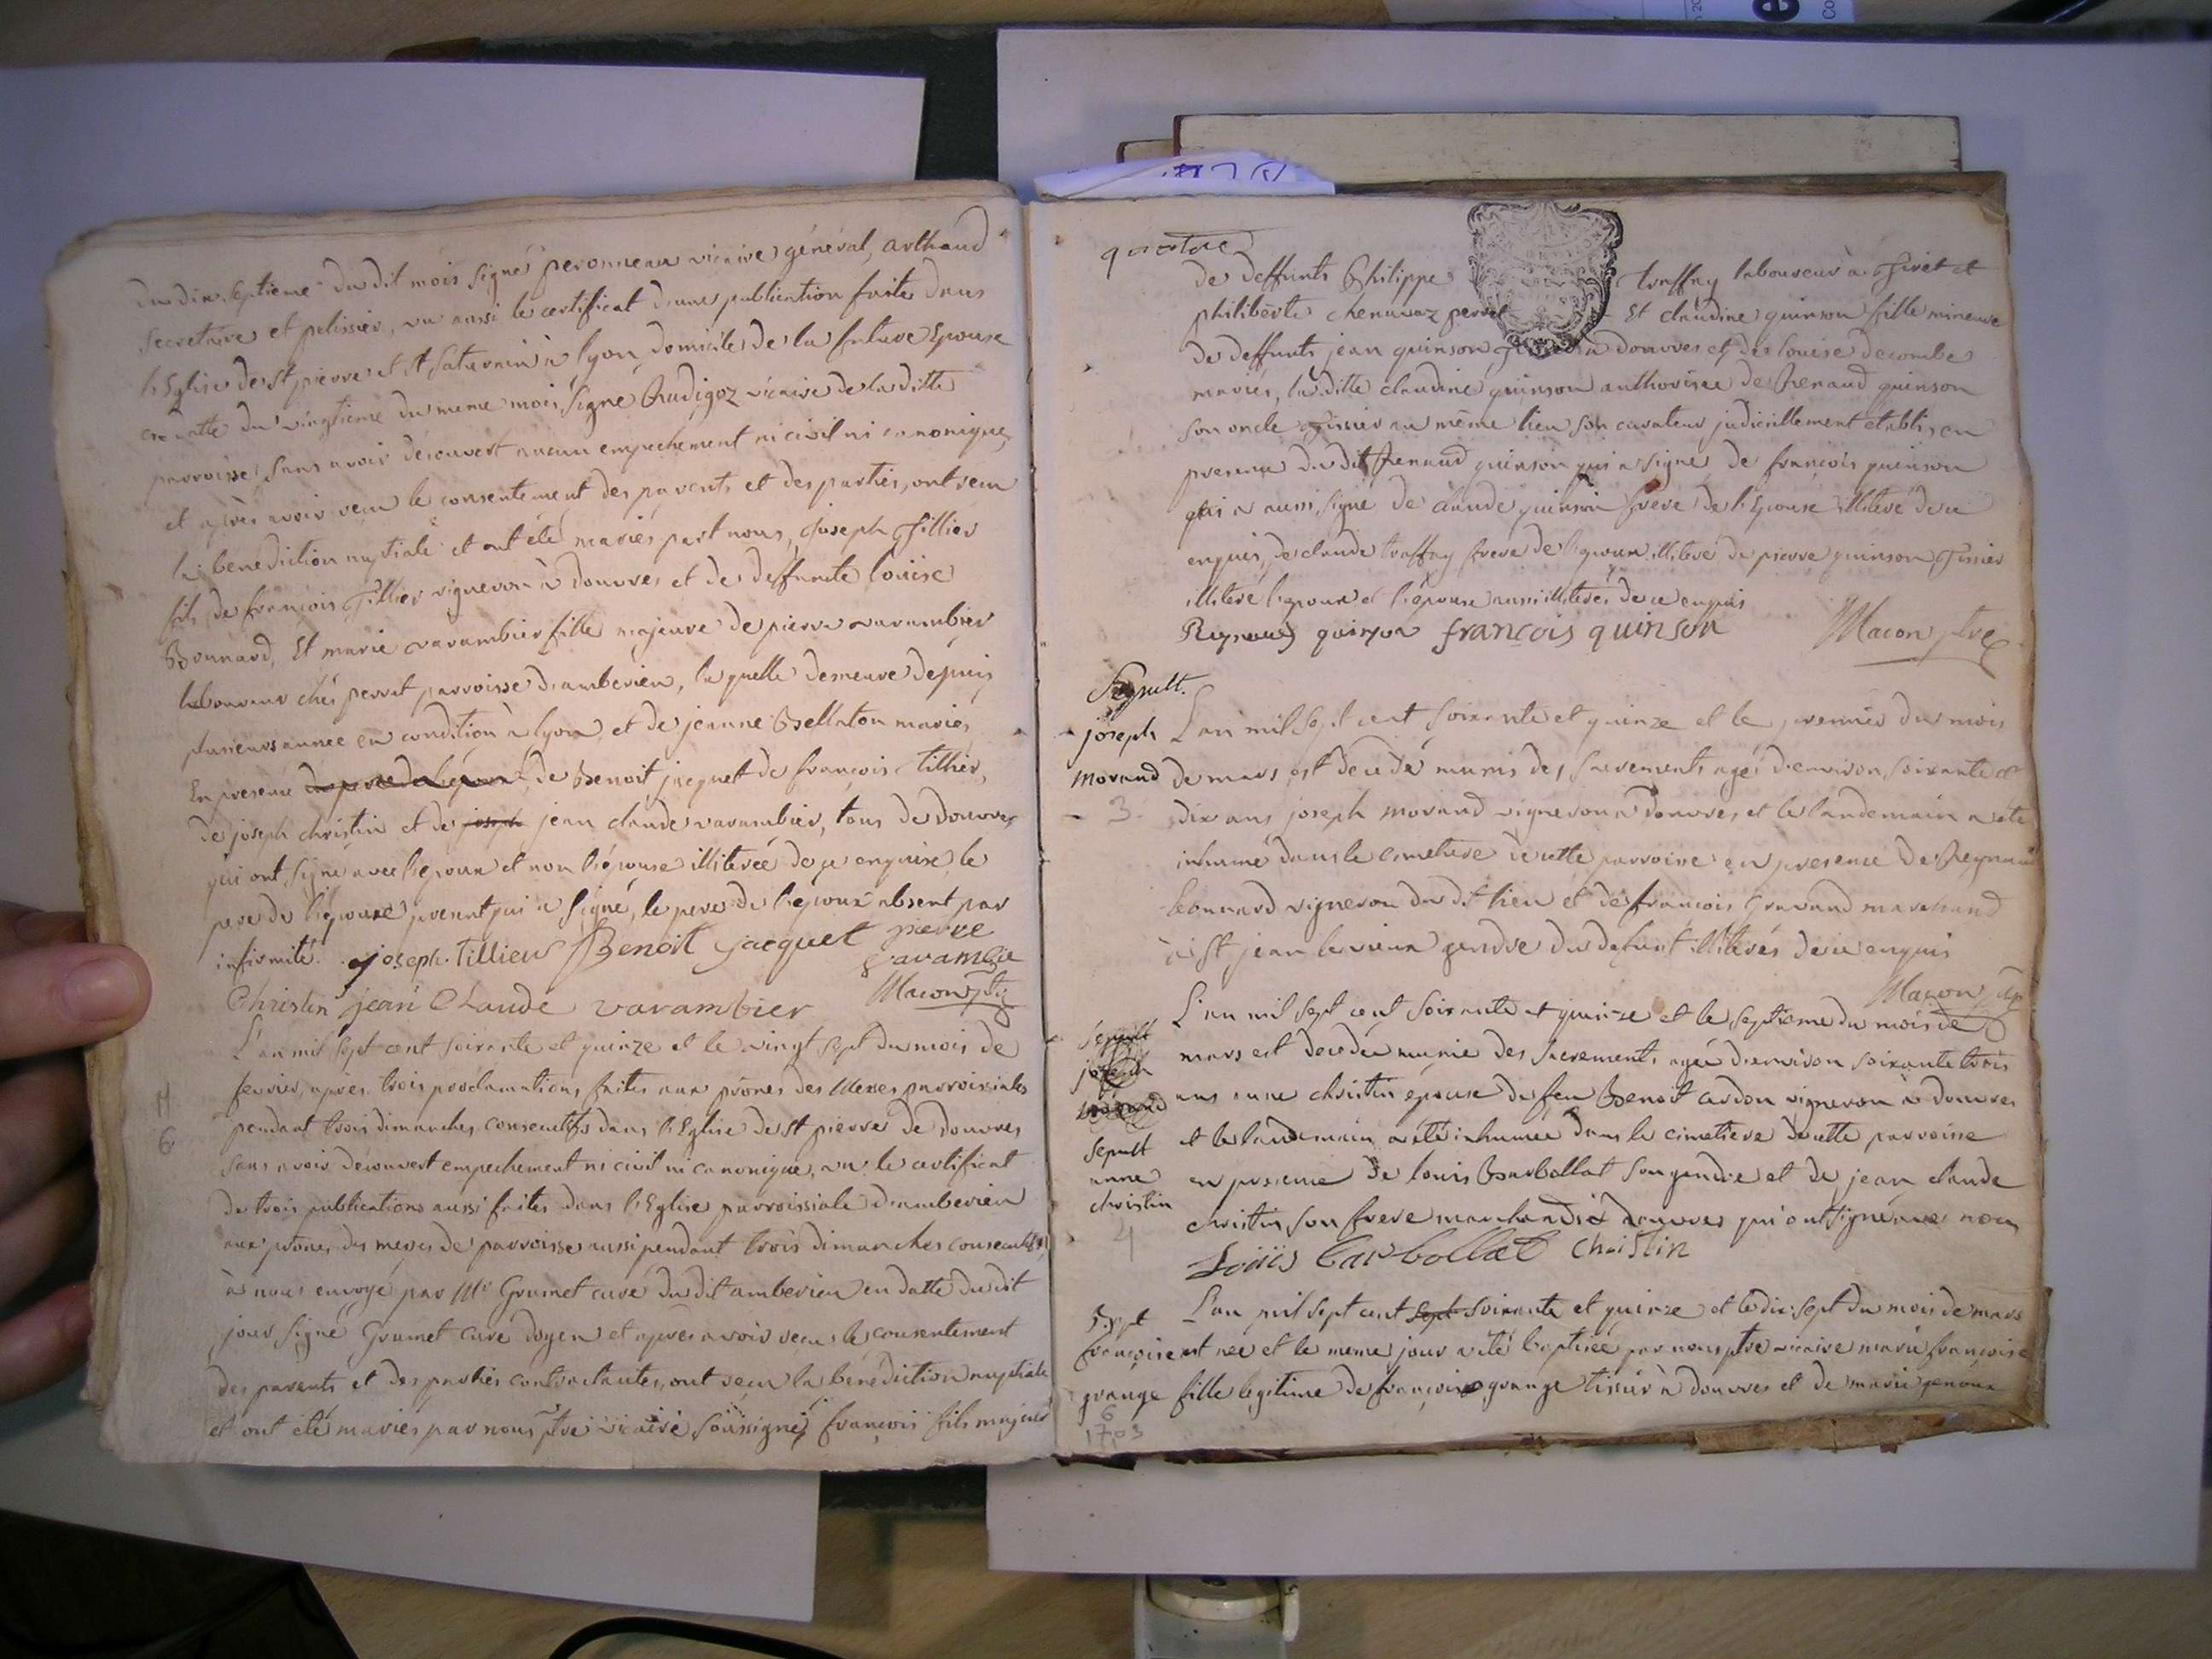 du dix septieme du dit mois signé peronneau vicaire général, arthaud
secretaire et pelissier, vu aussi le certificat d'une publication faite dans
l'Eglise de St pierre et St Saturnin à lyon, domicile de la future Epouse
en datte du vingtieme du meme mois, signé Rudigoz vicaire de la ditte
parroisse, sans avoir decouvert aucun empechement ni civil ni canonique,
et après avoir reçu le consentement des parents et des parties, ont reçu
la benediction nuptiale et ont été mariés par nous, joseph Tillier
fils de françois Tillier vigneron à douvres et de deffunte louise
Bonnard, Et marie varambier fille majeure de pierre varambier
laboureur chés perret parroisse d'amberieu, la quelle demeure depuis
plusieurs année en condition à lyon, et de jeanne Bellaton mariés,
En presence de Benoit jacquet de françois Tillier,
de joseph christin et de joseph jean claude varambier, tous de douvres
qui ont signé avec l'epoux et non l'épouse illiterée de ce enquise le
pere de l'épouse present qui a signé, le pere de l'époux absent par
infirmité. joseph Tillieu Benoit jacquet pierre
varambie
Christin jean Claude varambier Macon ptre
L'an mil sept cent soixante et quinze et le vingt sept du mois de
fevrier, apres trois proclamations faites aux prônes des Messes parroissiales
11
6
pendant trois dimanches consecutifs dans l'Eglise de St pierre de douvres
sans avoir decouvert empechement ni civil ni canonique, vu le certificat
de trois publications aussi faites dans l'Eglise parroissiale d'amberieu
aux prônes des messes de parroisse aussi pendant trois dimanches consecutifs,
à nous envoyé par Mr Grumet curé du dit amberieu en datte du dit
jour, signé Grumet curé doyen et apres avoir recu le consentement
des parents et des parties contractantes, ont recu la bénédiction nuptiale
et ont été mariés par nous ptre vicaire soussigné, françois fils majeur
quatre
de deffunts Philippe traffay laboureur à Giret et
philiberte chenavaz perret Et claudine quinson fille mineure
de deffunts jean quinson à douvres et de louise decombe
mariés, la ditte claudine quinson authorisée de Renaud quinson
son oncle Tissier au même lieu son curateur judiciellement etabli, en
presence du dit Renaud quinson qui a signé de françois quinson
qui a aussi signé de claude quinson frere de l'Epouse illiteré de ce
enquis, de claude traffay frere de l'epoux illiteré de pierre quinson Tissier
illiteré l'epoux et l'épouse aussi illiterés de ce enquis
Reynaud quinson françois quinson Macon ptre
Sepult.
joseph
morand
3
L'an mil sept cent soixante et quinze et le premier du mois
de mars est decedé munis des sacrements agé d'environ soixante et
dix ans joseph morand vigneron à douvres, et le landemain a été
inhumé dans le cimetiere de cette parroisse en presence de Reynaud
bonnard vigneron du dit lieu et de françois Gravand marchand
à St jean le vieux gendre du defunt illiterés de ce enquis
Macon ptre
sepult
joseph
morand
sepult
anne
christin
4
L'an mil sept cent soixante et quinze et le septieme du mois de
mars est decedée munie des sacrements agée d'environ soixante trois
ans anne christin épouse de feu Benoit ardon vigneron à douvres
et le landemain a été inhumée dans le cimetiere de cette parroisse
en presence de louis Barbollat son gendre et de jean claude
christin son frere marchand à douvres qui ont signé avec nous
Loüis Barbollat Christin
françoise
grange
6
1703
L'an mil sept cent sept soixante et quinze et le dix sept du mois de mars
est née et le meme jour a été baptisée par nous ptre vicaire marie françoise
fille legitime de françois grange tissier à douvres et de marie genoux